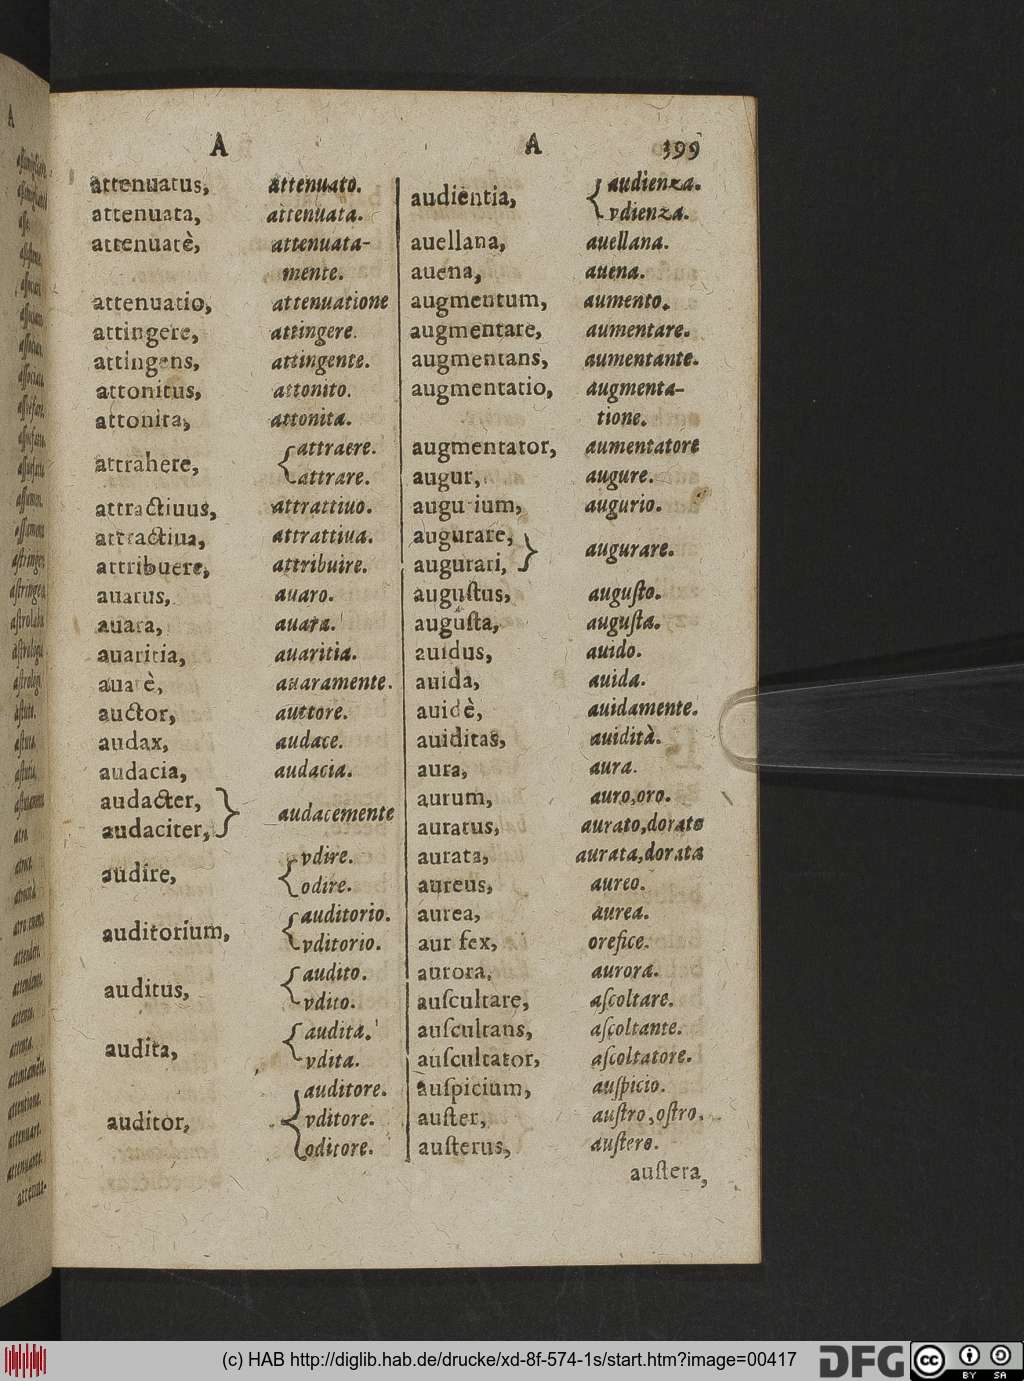 A A 399
attenuatus, attenuato.
attenuata, attenuata.
attenuatè, attenuata-
mente.
attenuatio, attenuatione
attingere, attingere.
attingens, attingente.
attonitus, attonito.
attonita, attonita.
attrahere, { attraere.
attrare.
attractiuus, attrattiuo.
attractiua, attrattiua.
attribuere, attribuire.
auarus, auaro.
auara, auara.
auaritia, auaritia.
auarè, auaramente.
auctor, auttore.
audax, audace.
audacia, audacia.
audacter,
audaciter, } audacemente
audire, { vdire.
odire.
auditorium, { auditorio.
vditorio.
auditus, { audito.
vdito.
audita, { audita.
vdita.
auditor, { auditore.
vditore.
oditore.
audientia, { audienza.
vdienza.
auellana, auellana.
auena, auena.
augmentum, aumento.
augmentare, aumentare.
augmentans, aumentante.
augmentatio, augmenta-
tione.
augmentator, aumentatore
augur, augure.
augurium, augurio.
augurare,
augurari, } augurare.
auguſtus, auguſto.
auguſta, auguſta.
auidus, auido.
auida, auida.
auidè, auidamente.
auiditas, auidità.
aura, aura.
aurum, auro, oro.
auratus, aurato, dorato
aurata, aurata, dorata
aureus, aureo.
aurea, aurea.
aurifex, orefice.
aurora, aurora.
auſcultare, aſcoltare.
auſcultans, aſcoltante.
auſcultator, aſcoltatore.
auſpicium, auſpicio.
auſter, auſtro, oſtro.
auſterus, auſtero.
auſtera,
(c) HAB http://diglib.hab.de/drucke/xd-8f-574-1s/start.htm?image=00417
DFG
cc BY SA